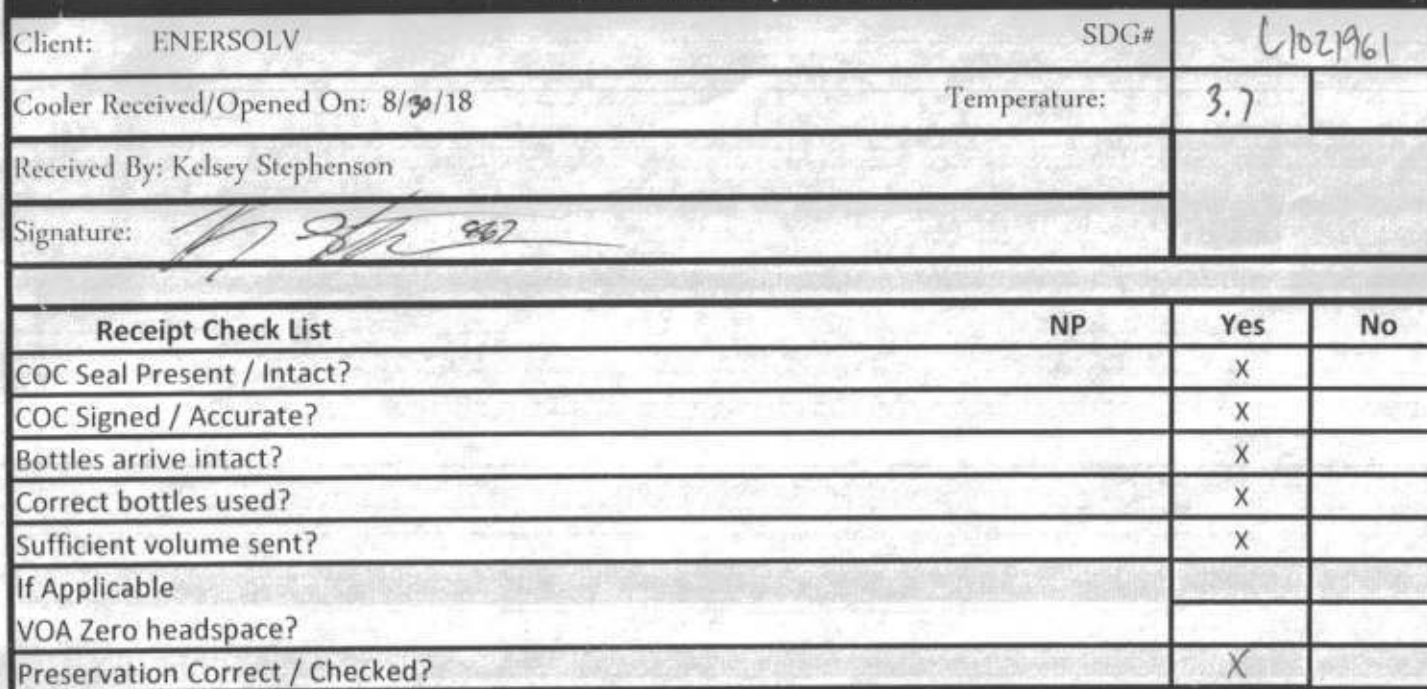 Client: ENERSOLV SDG# L1021961
Cooler Received/Opened On: 8/30/18 Temperature: 3.7
Received By: Kelsey Stephenson
Signature: 867
Receipt Check List NP Yes No
COC Seal Present / Intact? X
COC Signed / Accurate? X
Bottles arrive intact? X
Correct bottles used? X
Sufficient volume sent? X
If Applicable
VOA Zero headspace?
Preservation Correct / Checked? X